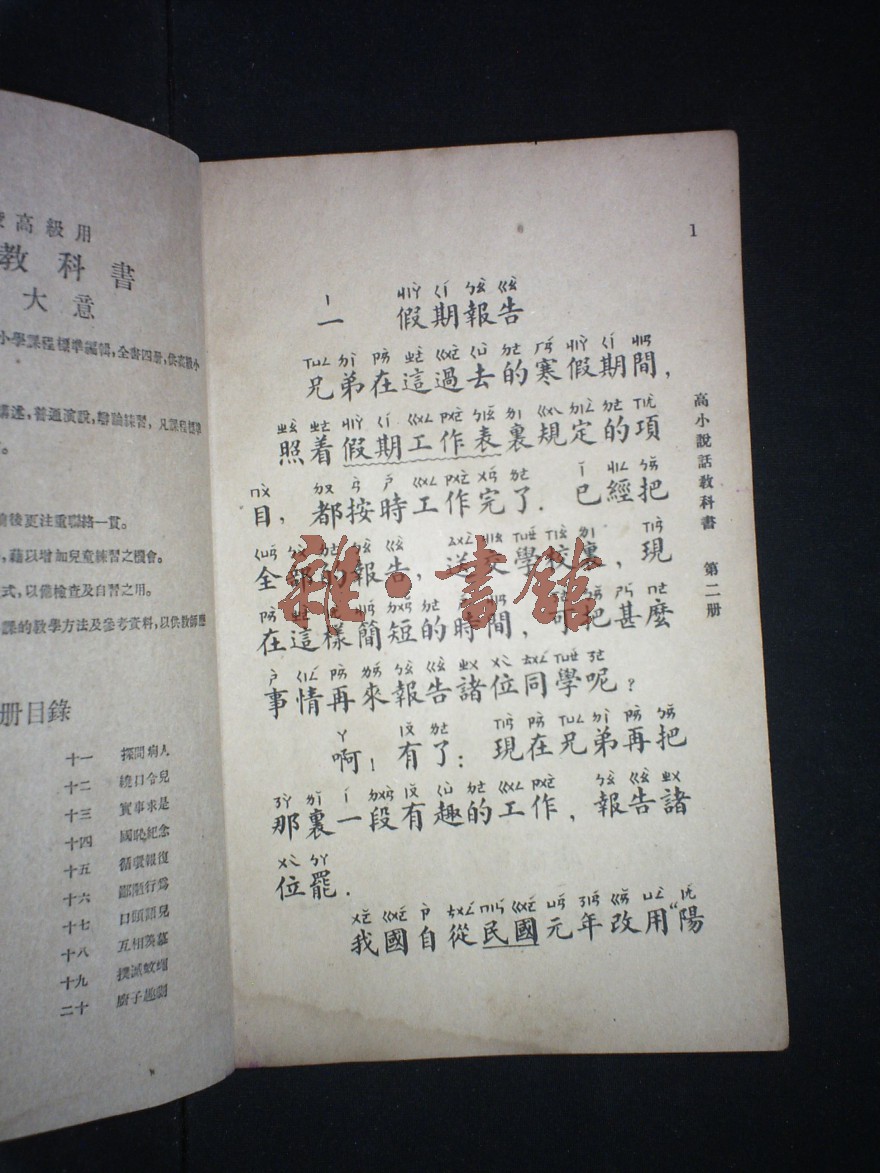 高級用
教科書
大意
小學課程標準編輯，全書四册，供高級小
講述，普通演說，辯論練習，凡課程標準
前後更注重聯絡一貫。
，藉以增加兒童練習之機會。
式，以備檢查及自習之用。
課的教學方法及參考資料，以供教師應
册目錄
十一 探問病人
十二 繞口令兒
十三 實事求是
十四 國恥紀念
十五 循環報復
十六 鄙陋行爲
十七 口頭語兒
十八 互相羨慕
十九 撲滅蚊蠅
二十 廚子趣聞
1
高小說話教科書 第二册
一 假期報告
兄弟在這過去的寒假期間，
照着假期工作表裏規定的項
目，都按時工作完了．已經把
全部的報告，送交學校裏，現
在這樣簡短的時間，可把甚麼
事情再來報告諸位同學呢？
啊！有了：現在兄弟再把
那裏一段有趣的工作，報告諸
位罷．
我國自從民國元年改用“陽
雜·書館